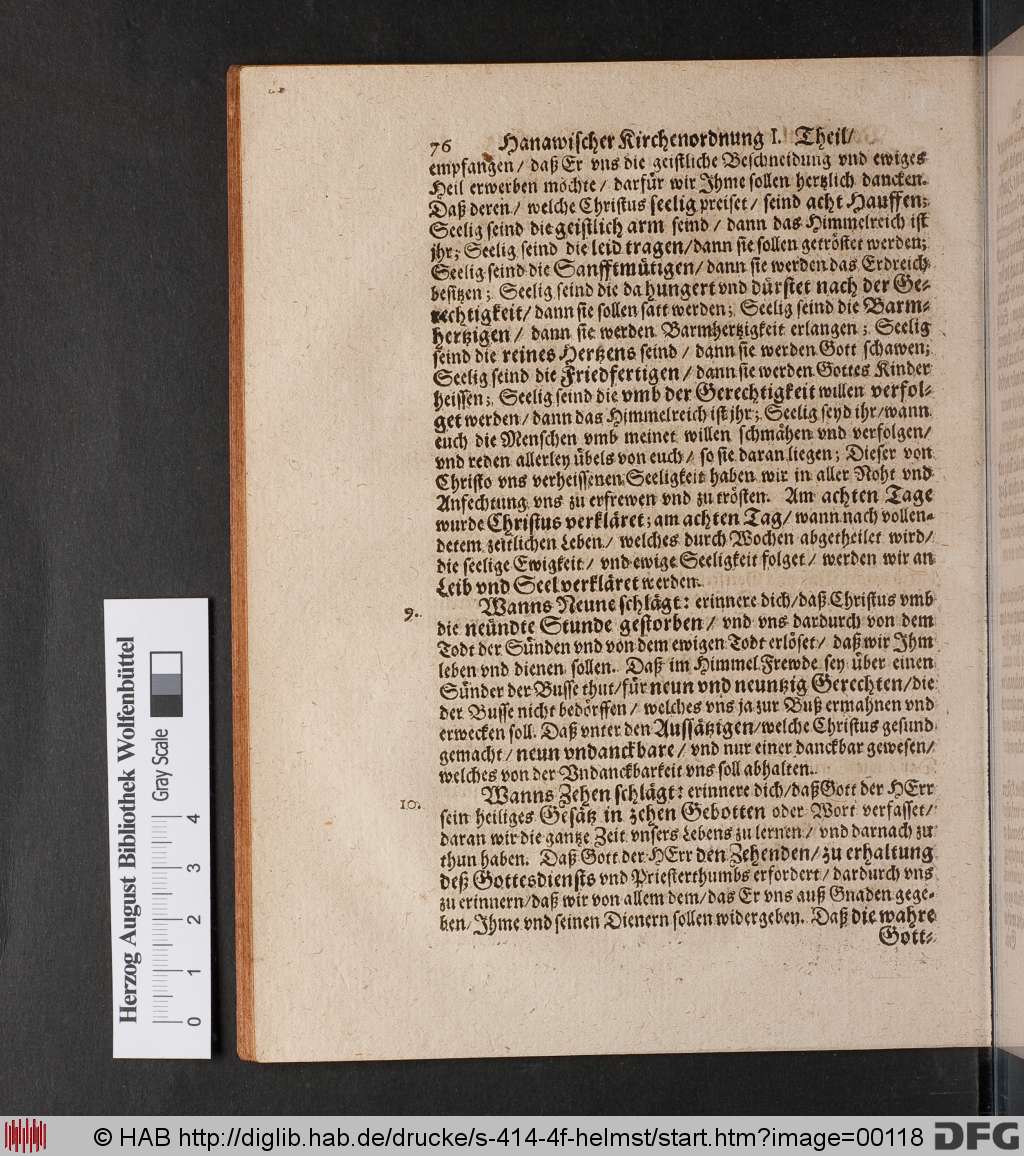 76 Hanawischer Kirchenordnung I. Theil/
empfangen/ daß Er vns die geistliche Beschneidung vnd ewiges
Heil erwerben möchte/ darfür wir Ihme sollen hertzlich dancken.
Daß deren/ welche Christus seelig preiset/ seind acht Hauffen;
Seelig seind die geistlich arm seind/ dann das Himmelreich ist
jhr; Seelig seind die leid tragen/ dann sie sollen getröstet werden;
Seelig seind die Sanfftmütigen/ dann sie werden das Erdreich
besitzen; Seelig seind die da hungert vnd dürstet nach der Ge-
rechtigkeit/ dann sie sollen satt werden; Seelig seind die Barm-
hertzigen/ dann sie werden Barmhertzigkeit erlangen; Seelig
seind die reines Hertzens seind/ dann sie werden Gott schawen;
Seelig seind die Friedfertigen/ dann sie werden Gottes Kinder
heissen; Seelig seind die vmb der Gerechtigkeit willen verfol-
get werden/ dann das Himmelreich ist jhr; Seelig seyd ihr/ wann
euch die Menschen vmb meinet willen schmähen vnd verfolgen/
vnd reden allerley übels von euch/ so sie daran liegen; Dieser von
Christo vns verheissenen Seeligkeit haben wir in aller Noht vnd
Anfechtung vns zu erfrewen vnd zu trösten. Am achten Tage
wurde Christus verkläret; am achten Tag/ wann nach vollen-
detem zeitlichen Leben/ welches durch Wochen abgetheilet wird/
die seelige Ewigkeit/ vnd ewige Seeligkeit folget/ werden wir an
Leib vnd Seel verkläret werden.
9. Wanns Neune schlägt: erinnere dich/ daß Christus vmb
die neündte Stunde gestorben/ vnd vns dardurch von dem
Todt der Sünden vnd von dem ewigen Todt erlöset/ daß wir Ihm
leben vnd dienen sollen. Daß im Himmel Frewde sey über einen
Sünder der Busse thut/ für neun vnd neuntzig Gerechten/ die
der Busse nicht bedörffen/ welches vns ja zur Buß ermahnen vnd
erwecken soll. Daß vnter den Aussätzigen/ welche Christus gesund
gemacht/ neun vndanckbare/ vnd nur einer danckbar gewesen/
welches von der Vndanckbarkeit vns soll abhalten.
10. Wanns Zehen schlägt: erinnere dich/ daß Gott der HErr
sein heiliges Gesätz in zehen Gebotten oder Wort verfasset/
daran wir die gantze Zeit vnsers Lebens zu lernen/ vnd darnach zu
thun haben. Daß Gott der HErr den Zehenden/ zu erhaltung
deß Gottesdiensts vnd Priesterthumbs erfordert/ dardurch vns
zu erinnern/ daß wir von allem dem/ das Er vns auß Gnaden gege-
ben/ Ihme vnd seinen Dienern sollen widergeben. Daß die wahre
Gott-
Herzog August Bibliothek Wolfenbüttel
Gray Scale
0 1 2 3 4
© HAB http://diglib.hab.de/drucke/s-414-4f-helmst/start.htm?image=00118 DFG